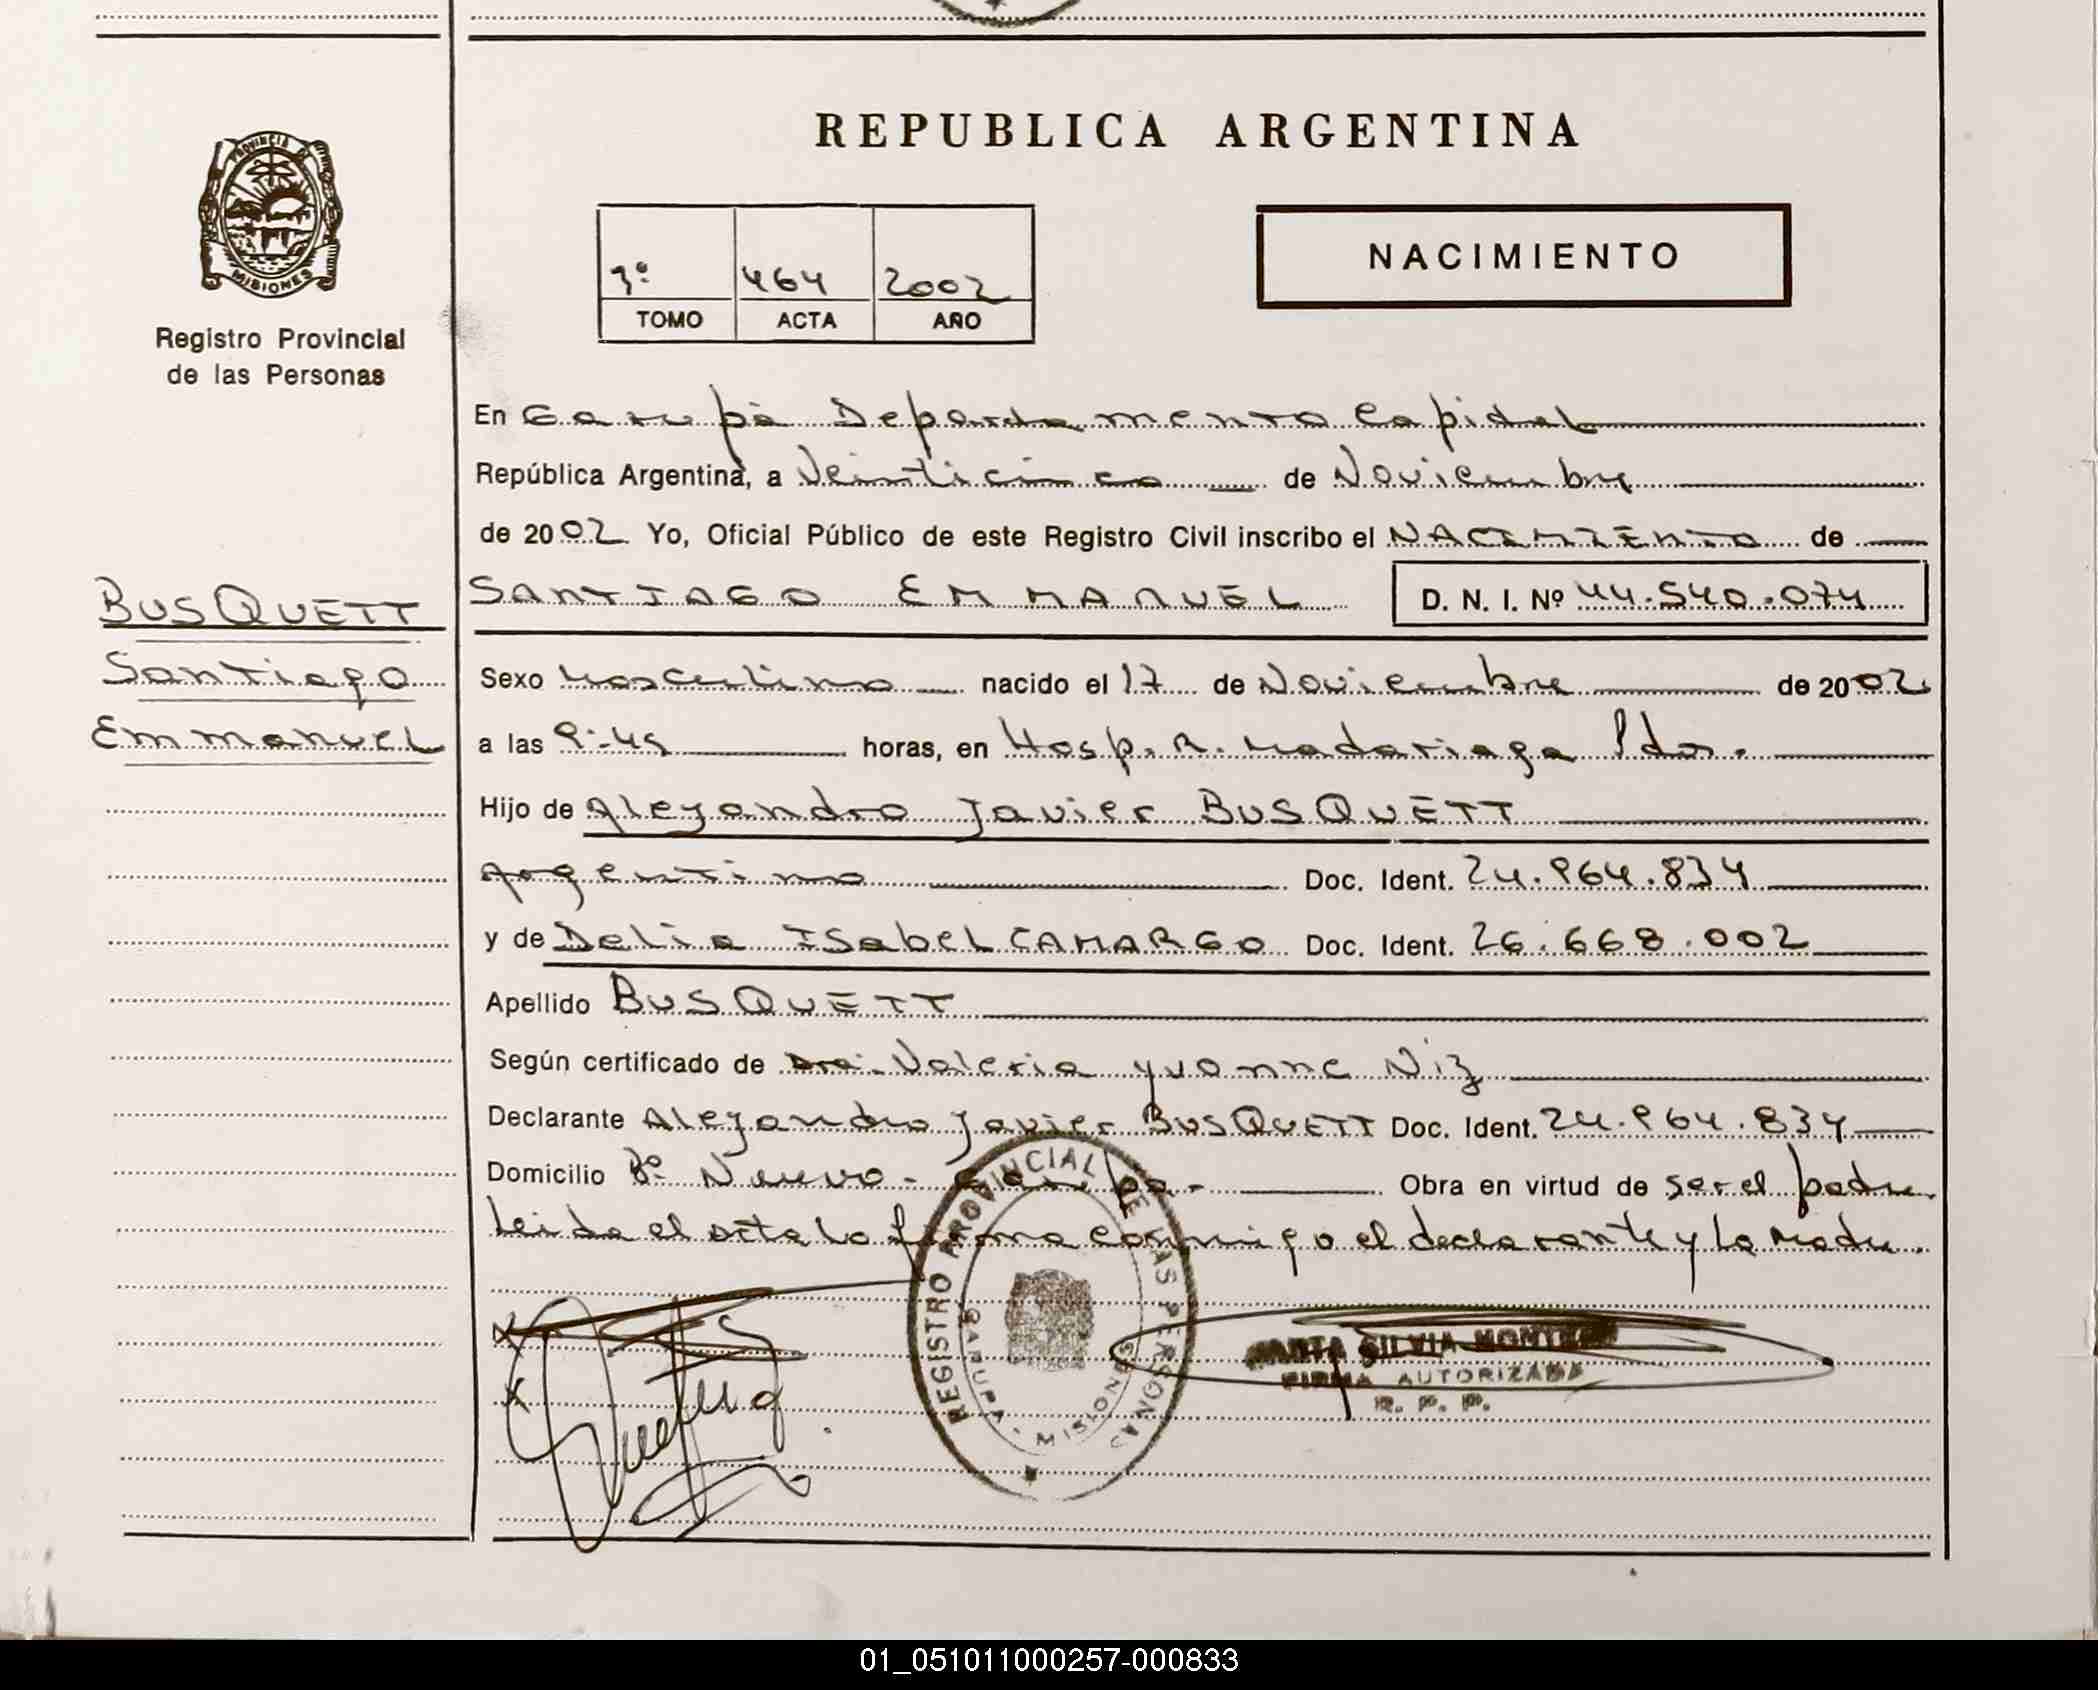 REPUBLICA ARGENTINA
PROVINCIA DE MISIONES
Registro Provincial
de las Personas
NACIMIENTO
464 2002
TOMO ACTA AÑO
En Garupá Departamento Capital
República Argentina, a Veinticinco de Noviembre
de 2002 Yo, Oficial Público de este Registro Civil inscribo el NACIMIENTO de
BUSQUETT
Santiago
Emmanuel
SANTIAGO EMMANUEL D. N. I. Nº 44.540.074
Sexo Masculino nacido el 17 de Noviembre de 2002
a las 9:45 horas, en Hosp. R. Madariaga Pdas.
Hijo de Alejandro Javier BUSQUETT
argentino Doc. Ident. 24.964.834
y de Delia Isabel CAMARGO Doc. Ident. 26.668.002
Apellido BUSQUETT
Según certificado de Dra. Valeria Yvonne Niz
Declarante Alejandro Javier BUSQUETT Doc. Ident. 24.964.834
Domicilio Bº Nuevo - Garupá - Obra en virtud de ser el padre.
Leida el acta la firma conmigo el declarante y la madre.
REGISTRO PROVINCIAL DE LAS PERSONAS
GARUPA - MISIONES
SILVIA
FIRMA AUTORIZADA
R. P. P.
01_051011000257-000833